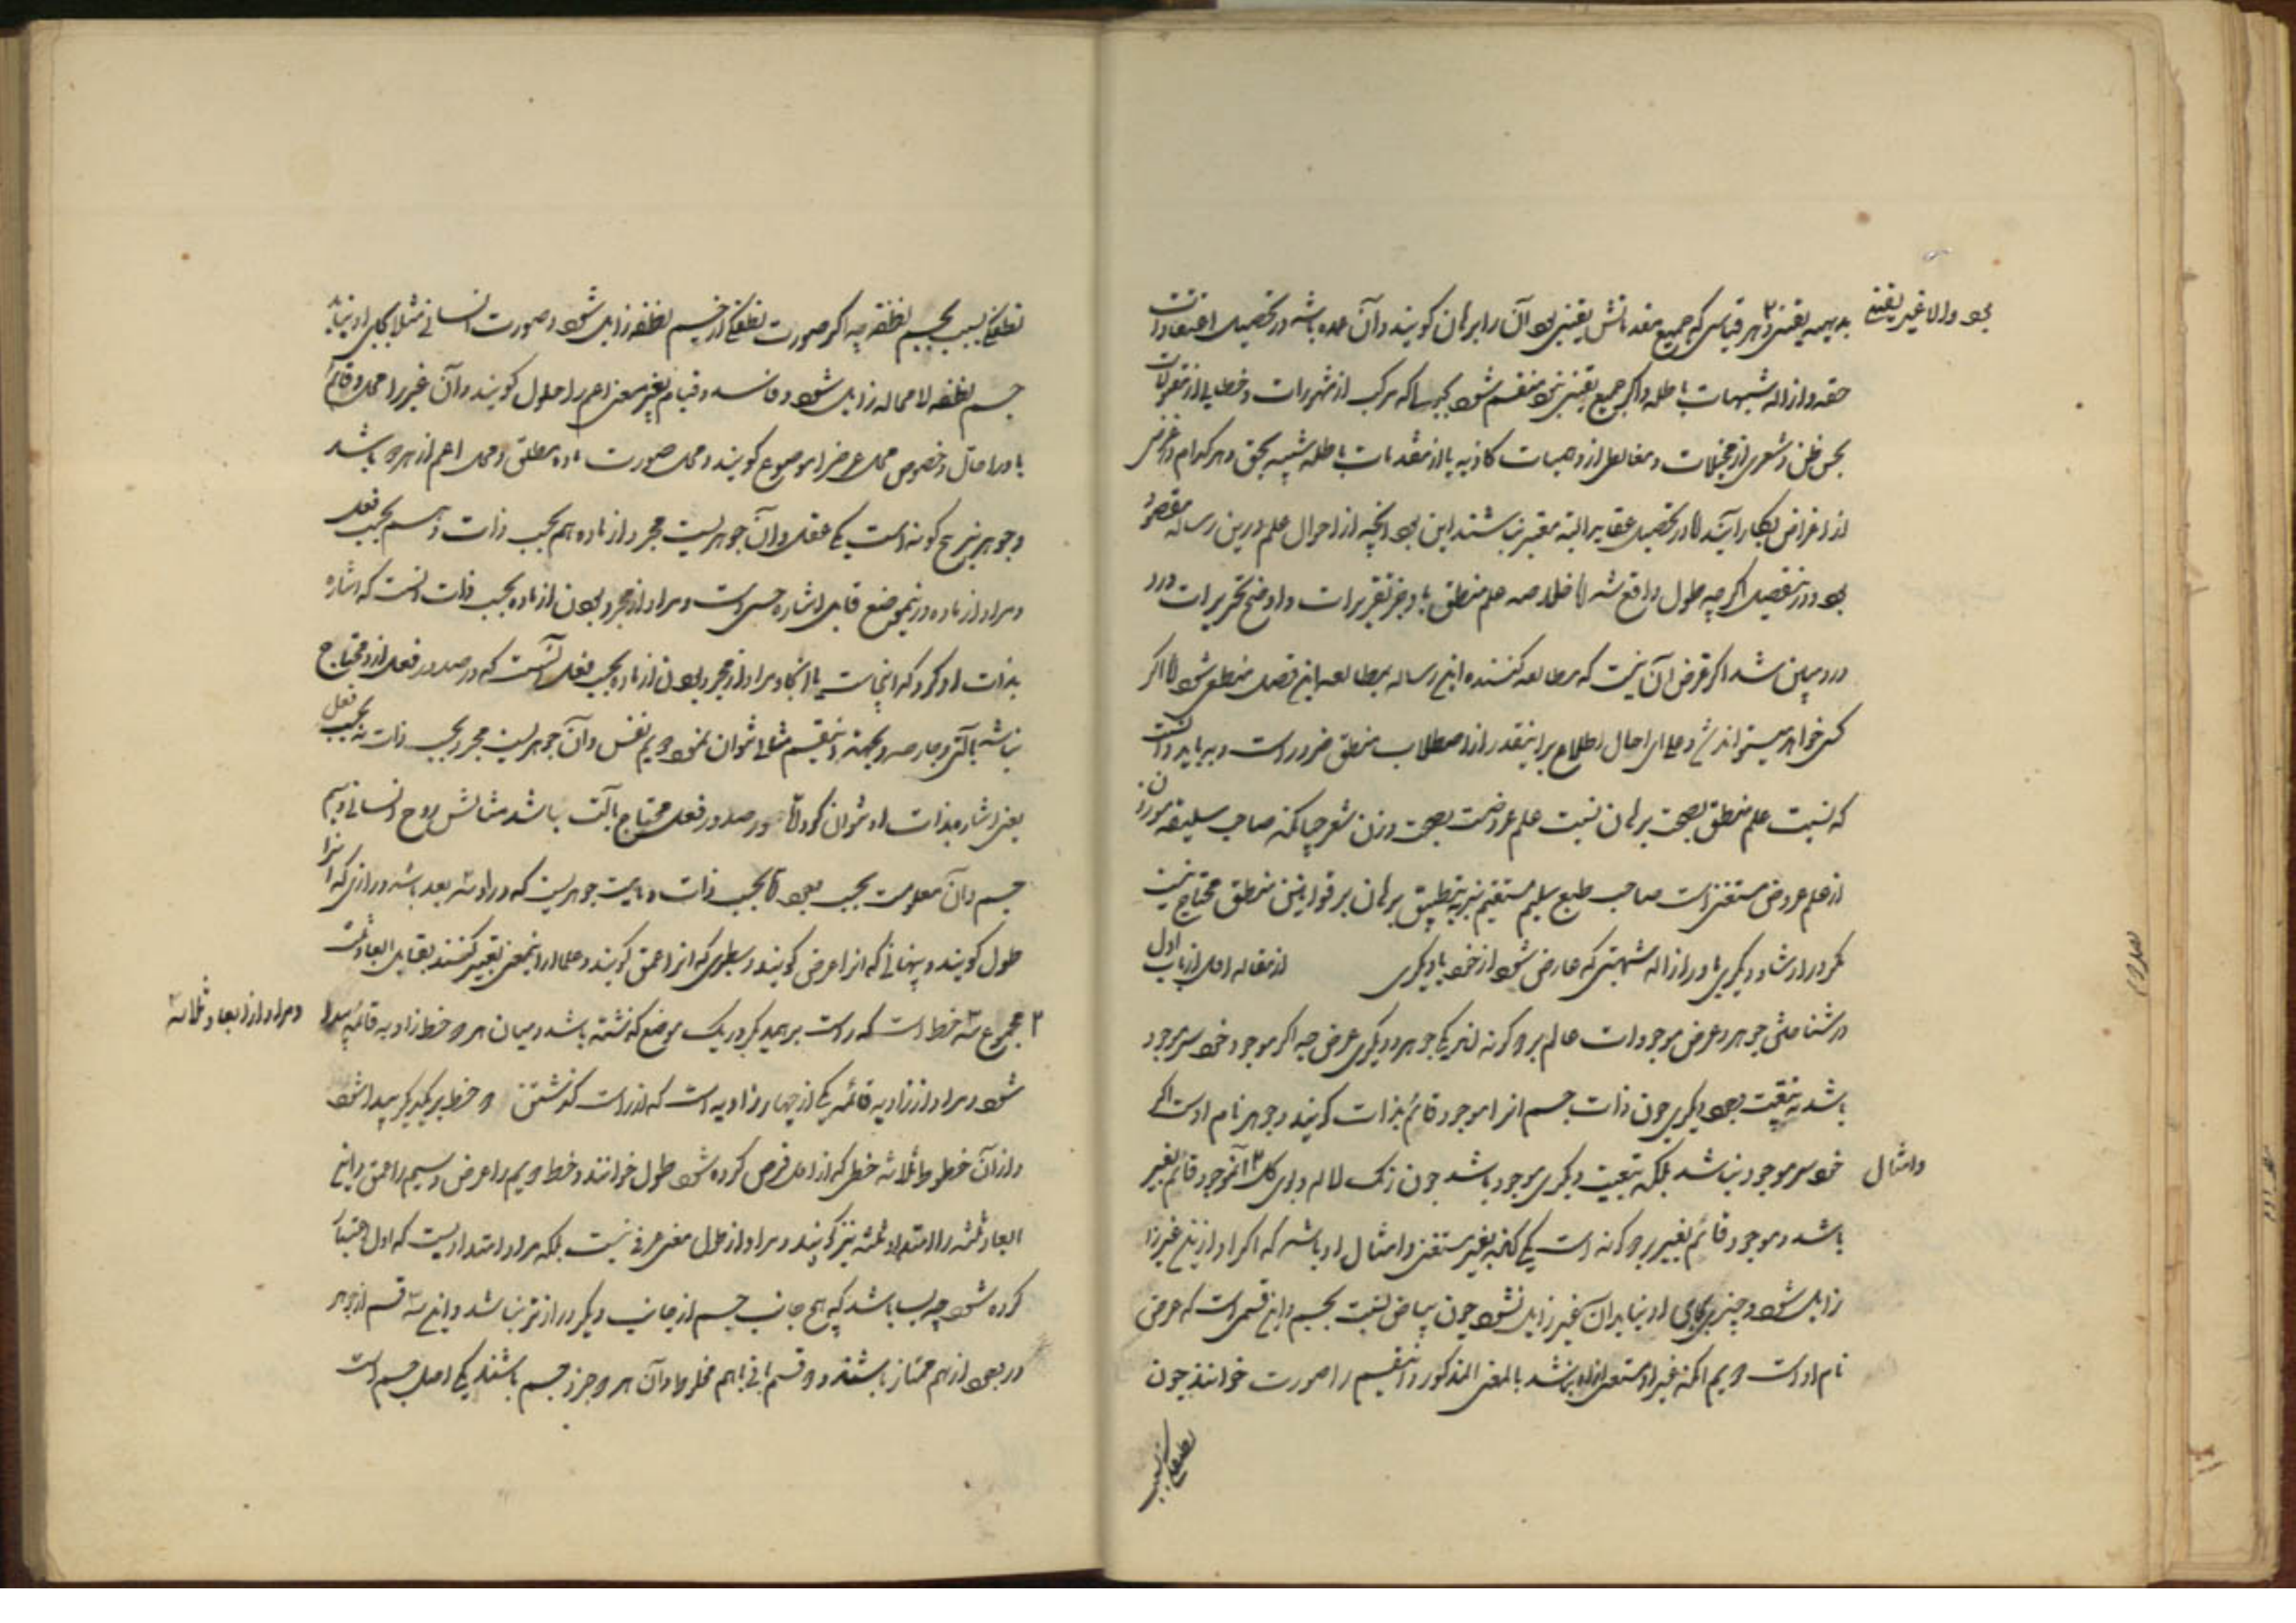 بدیهیه یقینی و هر قیاسی که جمیع مقدماتش یقینی بود آن را برهان گویند و آن عمده باشد در تحصیل اعتقادات
بود والا غیر یقینی
حقه و ازاله شبهات باطله و اگر جمیع یقینی نبود منقسم شود که مرکب از مشهورات و خطابی از مقبولات
بحسن ظن و شعری از مخیلات و مغالطی از وهمیات کاذبه یا از مقدمات باطله شبیه بحق و هر کدام در غرضی
از اغراض بکار آیند اما در تحصیل عقاید البته معتبر نباشند این بود آنچه از احوال علم درین رساله مقصود
بود و در تفصیل اگر چه طول واقع شد اما خلاصه علم منطق باوجز تقریرات و اوضح تحریرات درو
درو مبین شد اگر غرض آن نیست که مطالعه کننده این رساله بمطالعه این فصل منطقی شود اما اگر
کسی خواهد میتواند شد و علی ای حال اطلاع بر اینقدر از اصطلاحات منطق ضرور است و بباید دانست
که نسبت علم منطق بصحت برهان نسبت علم عروضست بصحت وزن شعر چنانکه صاحب سلیقه موزون
از علم عروض مستغنی است صاحب طبع سلیم مستقیم نیز بتطبیق برهان بر قوانین منطق محتاج نیست
مگر در ارشاد دیگری یا در ازاله شبهتی که عارض شود از خود یا دیگری از مقاله اولی از باب اول
در شناختن جوهر و عرض موجودات عالم بر دو گونه‌اند یکی جوهر و دیگری عرض چه اگر موجود خود سر موجود
باشد نه بتبعیت دیگری چون ذات جسم انرا موجود قائم بذات گویند و جوهر نام اوست و اگر
خود سر موجود نباشد بلکه بتبعیت دیگری موجود باشد چون رنگ لاله و بوی گل آن موجود قائم بغیر
وامثال
باشد و موجود قائم بغیر بر دو گونه است یکی آنکه غیر مستغنی و امثال او باشد که اگر او ازین غیر
زایل شود و چیزی بجای او نیاید آن غیر زایل نشود چون بیاض نسبت بجسم و این قسمی است که عرض
نام اوست دویم آنکه غیر او مستغنی از او نباشد بالمعنی المذکور و این قسم را صورت خوانند چون
نطفگی بسبب
نطفگی نسبت بجسم نطفه چه اگر صورت نطفگی از جسم نطفه زایل شود و صورت انسانی مثلا بجای او نیاید
جسم نطفه لا محاله زایل شود و فاسد و قیام بغیر بمعنی اعم را حلول گویند و آن غیر را محل و قائم
باو را حال و خصوص محل عرض را موضوع گویند و محل صورت ماده مطلق و محل اعم از هر دو باشد
و جوهر پنج گونه است یکی عقل و آن جوهریست مجرد از ماده هم بحسب ذات و هم بحسب فعل
و مراد از ماده درینموضع قابل اشاره حسی است و مراد از مجرد بودن از ماده بحسب ذات انست که اشاره
بذات او نتوان کرد که اینجاست یا آنجا و مراد از مجرد بودن از ماده بحسب فعل آنست که در صدور فعل از او محتاج
نباشد بآلتی و جارحه و بجهة اینقسم مثالی نتوان نمود دویم نفس و آن جوهریست مجرد بحسب ذات نه بحسب فعل
یعنی اشاره بذات او نتوان کرد اما در صدور فعل محتاج بآلت باشد مثالش روح انسانی سیم
جسم و آن معلومست بحسب وجود اما بحسب ذات و ماهیت جوهریست که در او سه بعد باشد درازی که انرا
طول گویند و پهنائی که انرا عرض گویند و سطبری که انرا عمق گویند و علما از اینمعنی تعبیر کنند بقابل ابعاد ثلثه
ومراد از ابعاد ثلاثه
مجموع سه خط است که راست بر همدیگر در یک موضع گذشته باشد و میان هر دو خط زاویه قائمه پیدا
شود و مراد از زاویه قائمه یکی از چهار زاویه است که از راست گذشتن دو خط بر یکدیگر پیدا شود
و از آن خطوط ثلاثه خطی که از اول فرض کرده شود طول خوانند و خط دویم را عرض و سیم را عمق و این
ابعاد ثلثه را امتداد ثلثه نیز گویند و مراد از طول معنی عرفی نیست بلکه مراد امتدادیست که اول اعتبار
کرده شود چه بسا باشد که هیچ جانب جسم از جانب دیگر درازتر نباشد و این سه قسم از جوهر
در وجود از هم ممتاز باشند و دو قسم باقی باهم مخلوط و آن هر دو جزو جسم باشند یکی اصل جسم است